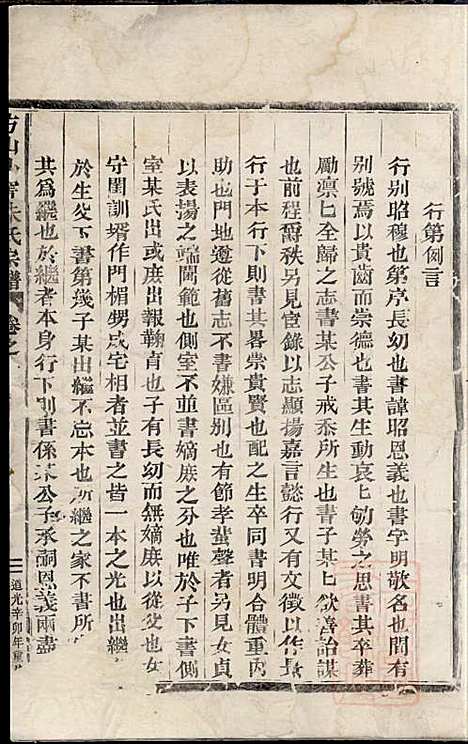 行第例言
行别昭穆也第序長幼也書諱昭恩義也書字明敬名也間有
别號焉以貴齒而崇德也書其生動哀哀劬勞之思書其卒葬
勵凜凜全歸之志書某公子戒忝所生也書子某某欲善詒謀
也前程爵秩另見宦錄以志顯揚嘉言懿行又有文徵以作長
行于本行下則書其畧崇貴賢也配之生卒同書明合體重內
助也門地遵從舊志不書嫌區别也有節孝蜚聲者另見女貞
以表揚之端閫範也側室不並書嫡庶之分也唯於子下書側
室某氏出或庶出報鞠育也子有長幼而無嫡庶以從父也女
守閨訓壻作門楣甥成宅相者並書之皆一本之光也出繼
於生父下書第幾子某出繼不忘本也所繼之家不書所
其爲繼也於繼者本身行下則書係某公子承嗣恩義兩盡
朱氏宗譜 卷之
道光辛卯年重